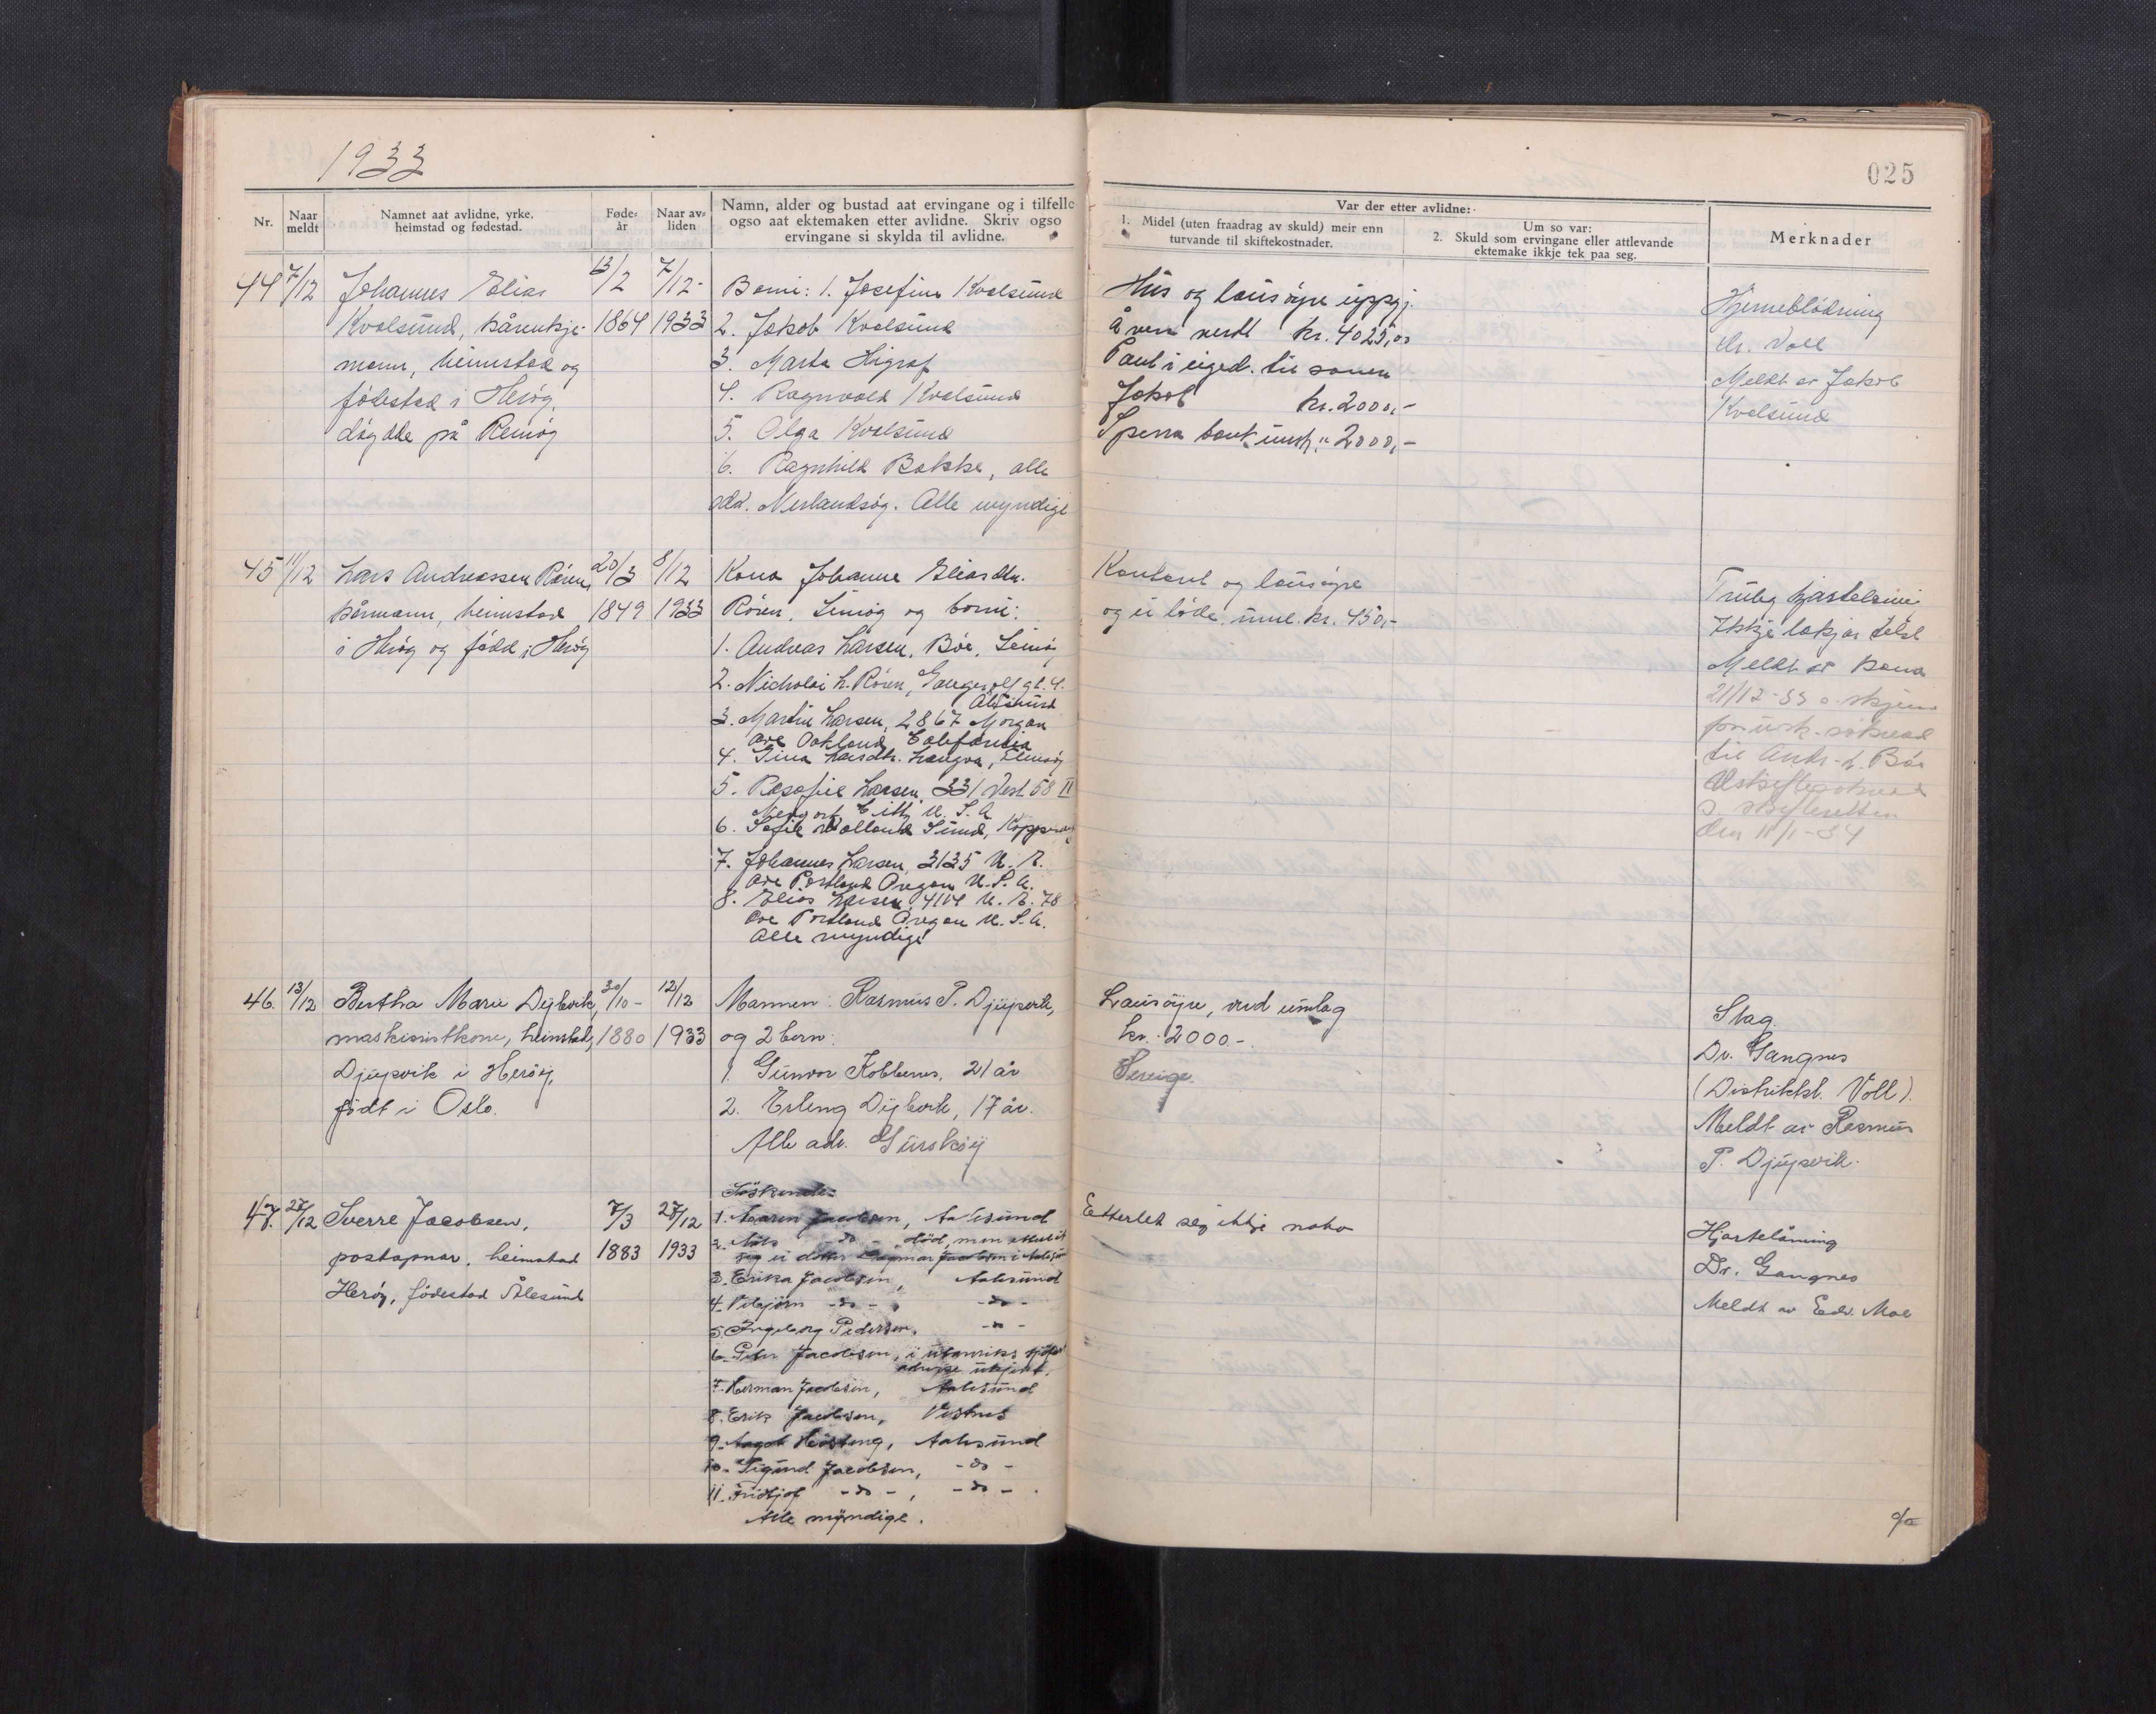 1933
025
Nr.
Naar meldt
Namnet aat avlidne, yrke,
heimstad og fødestad.
Føde-
år
Naar av-
liden
Namn, alder og bustad aat ervingane og i tilfelle
ogso aat ektemaken etter avlidne. Skriv ogso
ervingane si skylda til avlidne.
Var der etter avlidne:
1. Midel (uten fraadrag av skuld) meir enn
turvande til skiftekostnader.
Um so var:
2. Skuld som ervingane eller attlevande
ektemake ikkje tek paa seg.
Merknader
44 7/12 Johannes Elias
Kvalsund, kårenkje-
mann, heimstad og
fødestad i Herøy,
døydde på Remøy
13/2
1864
7/12-
1933
Borni: 1. Josefine Kvalsund
2. Jakob Kvalsund
3. Marta
4. Ragnvald Kvalsund
5. Olga Kvalsund
6. Ragnhild Bakke, alle
adr. Nerlandsøy. Alle myndige
Hus og lausøyre uppgj.
å vera verdt kr. 4025,00
Pant i eiged. til sonen
Jakob kr. 2000,-
" 2000,-
Hjerneblødning
Dr. Voll
Meldt av Jakob
Kvalsund
45 11/12 Lars Andreassen Røren,
kårmann, heimstad
i Herøy og fødd i Herøy
20/3
1849
8/12
1933
Kona Johanne Eliasdtr.
Røren, Leinøy og borni:
1. Andreas Larsen, Bøe, Leinøy
2. Nicholai L. Røren, gt. 4.
Ålesund
3. Martin Larsen, 2867 Morgan
ave Oakland, California
4. Gina Larsdtr.
5. Larsen, 331 Vest 58 II
City U.S.A
6. Sofie
7. Johannes Larsen, 3135 N. E.
ave Portland Oregon U.S.A.
8. Elias Larsen 4114 N. E. 78
ave Portland Oregon U.S.A.
Alle myndige
Kontant og lausøyre
og ei løde, kr. 450,-
Truleg
Ikkje lækjar
Meldt av kona
21/12-33
til Andr. L. Bøe
den 11/1-34
46. 13/12 Bertha Marie
maskinistkone, heimstad,
Djupvik i Herøy,
født i Oslo.
30/10-
1880
12/12
1933
Mannen: Rasmus P. Djupvik,
og 2 born:
1. Gunvor 21 år
2. Erling 17 år.
Alle adr. Gurskøy
Lausøyre, verd umlag
kr. 2000.-
Slag.
Dr. Gangnes
(Distriktsl. Voll).
Meldt av Rasmus
P. Djupvik.
47. 27/12 Sverre Jacobsen,
postopnar, heimstad
Herøy, fødestad Ålesund
7/3
1883
27/12
1933
Søskende:
1. Jacobsen, Aalesund
2. -do- død, men
3. Erika Jacobsen, Aalesund
4. -do-, -do-
5. Ingeborg Pedersen, -do-
6. Peter Jacobsen, i utanriks
adresse ukjent.
7. Herman Jacobsen, Aalesund
8. Erik Jacobsen, Vestnes
9. Aagot Aalesund
10. Sigurd Jacobsen, -do-
11. Fridtjof -do-, -do-.
Alle myndige.
Etterlet seg ikkje noko
Hjartelåming
Dr. Gangnes
Meldt av Edv. Moe